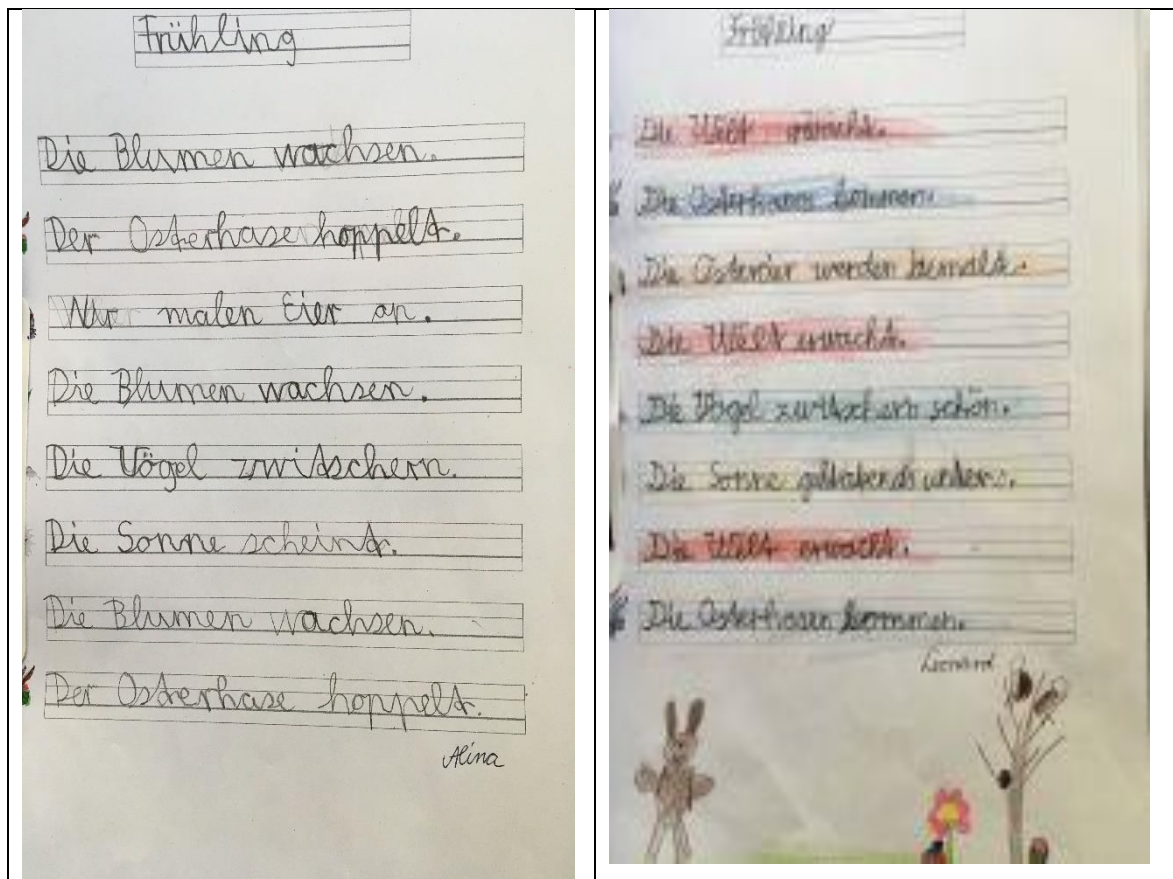 Frühling
Die Blumen wachsen.
Der Osterhase hoppelt.
Wir malen Eier an.
Die Blumen wachsen.
Die Vögel zwitschern.
Die Sonne scheint.
Die Blumen wachsen.
Der Osterhase hoppelt.
Alina
Frühling
Die Welt erwacht.
Die Osterhasen kommen.
Die Ostereier werden bemalt.
Die Welt erwacht.
Die Vögel zwitschern schön.
Die Sonne geht abends unter.
Die Welt erwacht.
Die Osterhasen kommen.
Leonard